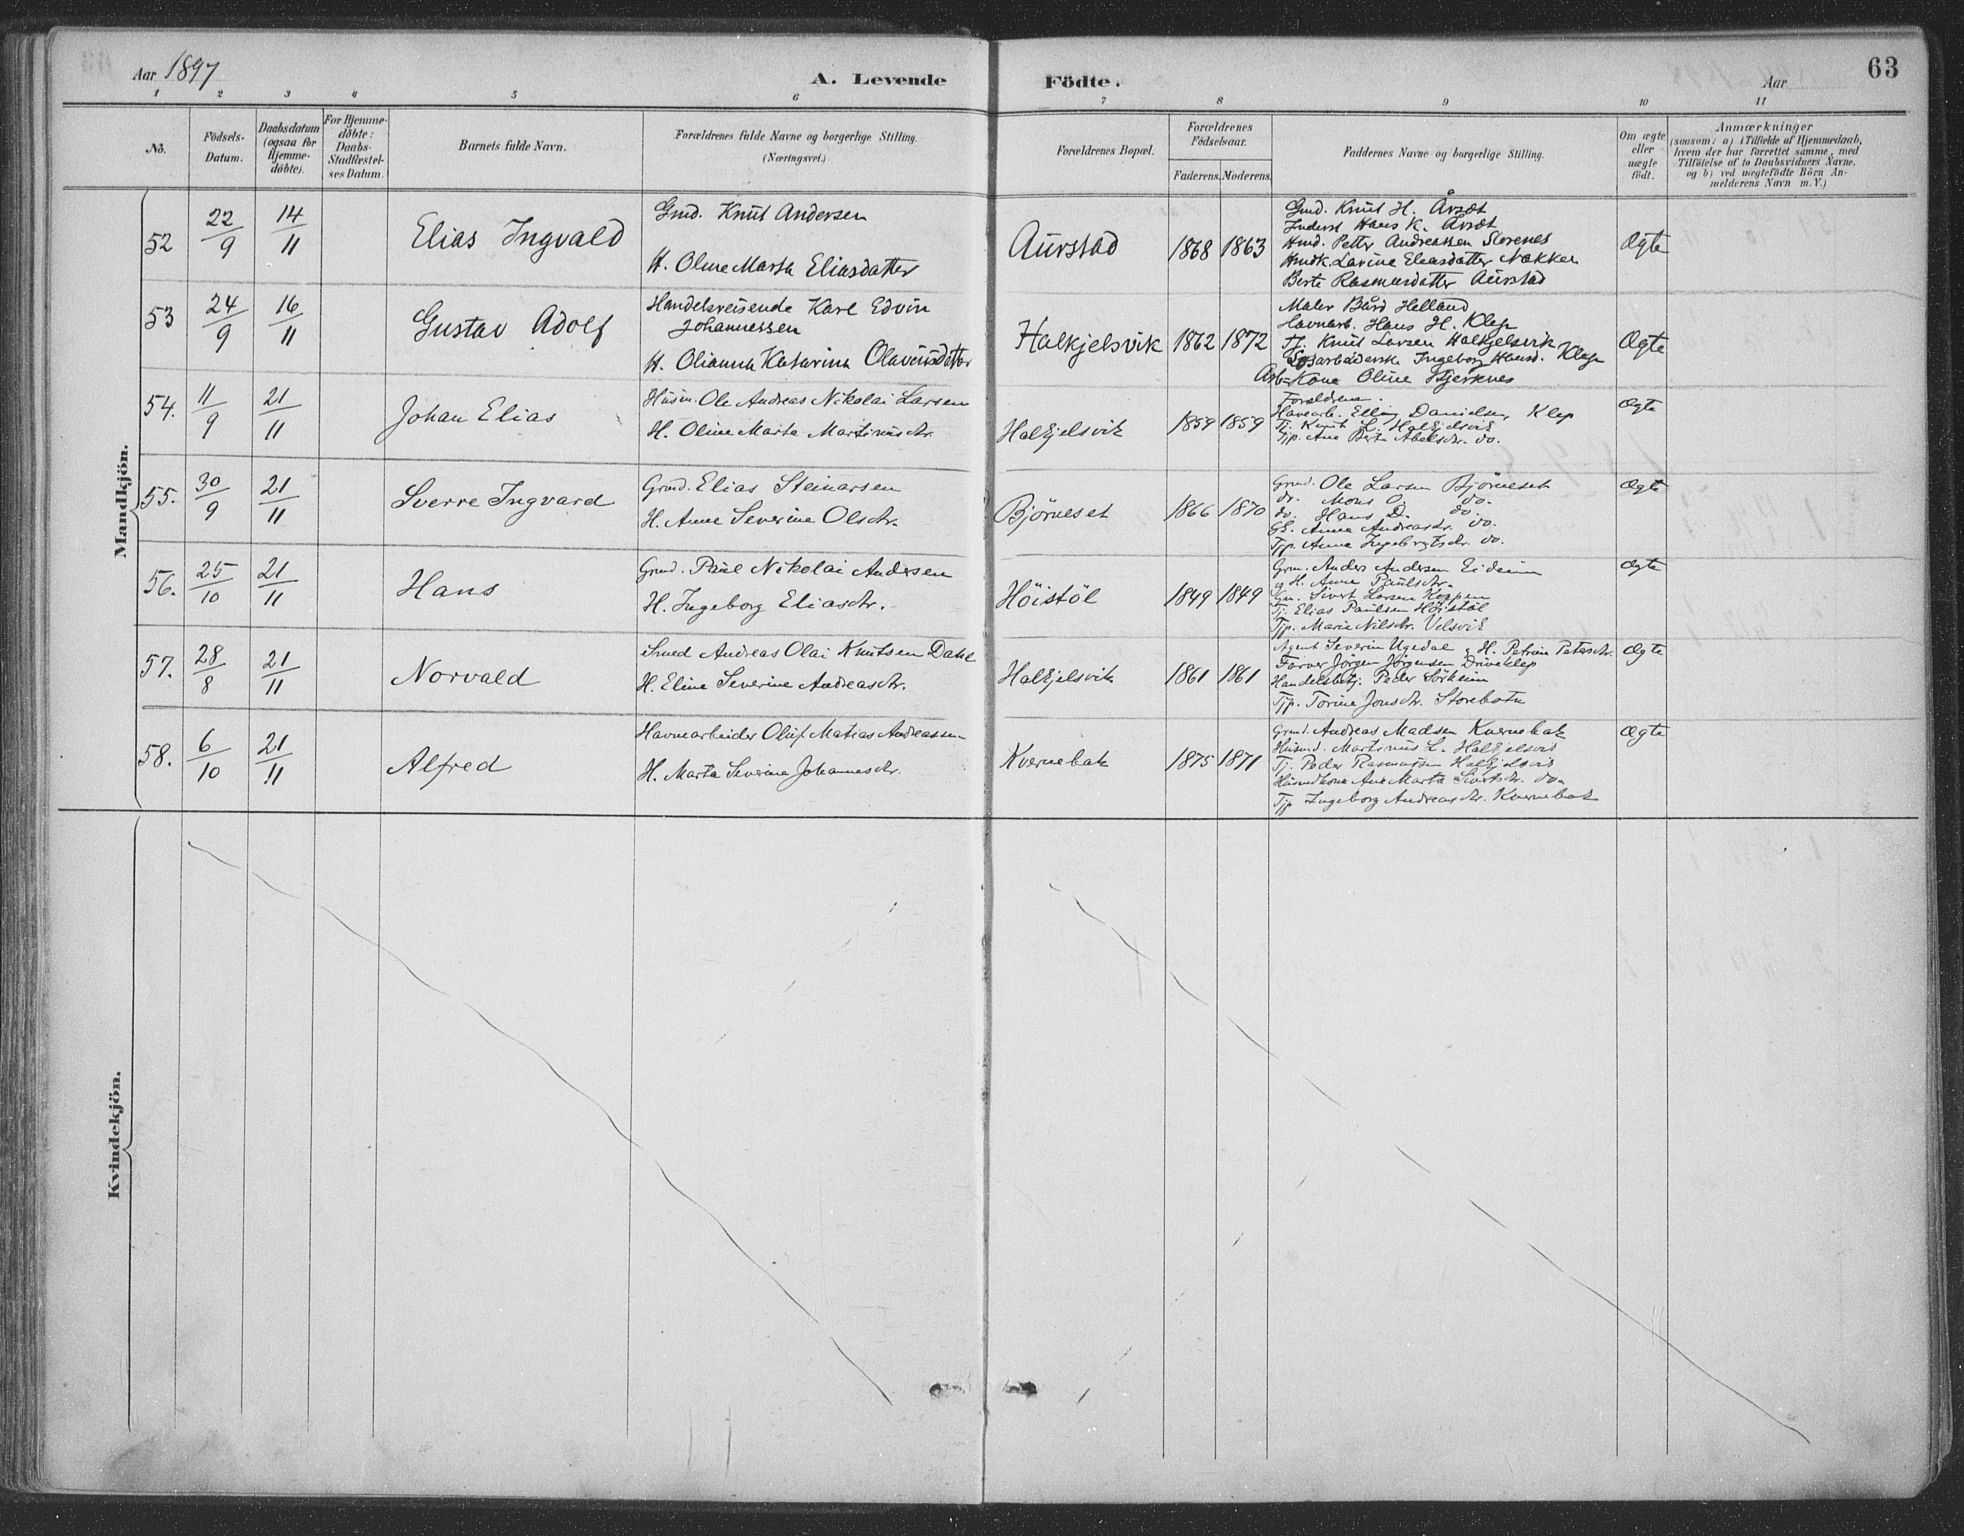 Aar 1897
A. Levende Födte.
Aar
63
1 2 3 4 5 6 7 8 9 10 11
No.
Födsels-
Datum.
Daabsdatum
(ogsaa for
Hjemme-
döbte).
For Hjemme-
döbte:
Daabs-
Stadfæstel-
ses Datum.
Barnets fulde Navn.
Forældrenes fulde Navne og borgerlige Stilling.
(Næringsvei.)
Forældrenes Bopæl.
Forældrenes
Födselsaar.
Faderens. Moderens.
Faddernes Navne og borgerlige Stilling.
Om ægte
eller
uægte
födt.
Anmærkninger
(saasom: a) i Tilfælde af Hjemmedaab,
hvem der har forrettet samme, med
Tilföielse af to Daabsvidners Navne.
og b) ved uægtefödte Börn An-
melderens Navn m. V.)
Mandkjön.
52 22/9 14/11 Elias Ingvald
Gmd. Knut Andersen
H. Oline Marta Eliasdatter
Aurstad 1868 1863
Gmd. Knut H. Årsæt
Inderst Hans K. Årsæt
Hmd. Petter Andreassen
Hmdk. Lavine Eleasdatter Nøkken
Berte Rasmusdatter Aurstad
Ægte
53 24/9 16/11 Gustav Adolf
Handelsreisende Karl Edvin
Johannessen
H. Olianna Katarina Olavensdatter
Halkjelsvik 1862 1872
Maler Bård Helland
Havnarb. Hans H. Klep
Tj. Knut Larsen Halkjelsvik
Ingeborg Hansd. Klep
Arb-Kone Oline Bjerknes
Ægte
54. 11/9 21/11 Johan Elias
Husm. Ole Andreas Nikolai Larsen
H. Oline Marta Martinusdtr.
Halkjelsvik 1859 1859
Forældrene.
Havearb. Elling Danielsen Klep
Tj. Knut L. Halkjelsvik
Tjp. Ane Berte Abelsdtr. do.
Ægte
55. 30/9 21/11 Sverre Ingvard
Grmd. Elias Steinarsen
H. Anne Severine Olsdtr.
Bjørneset 1866 1870
Grmd. Ole Larsen Bjørneset
do. Mons O. do.
do. Hans D. do.
Gk. Anne Andreasdtr. do.
Tjp. Anne Ingebrigtsdtr. do.
Ægte
56. 25/10 21/11 Hans
Grmd. Paul Nikolai Andersen
H. Ingeborg Eliasdtr.
Höistöl 1849 1849
Grm. Anders Andersen Eideim
og H. Anne Paulsdtr.
Gm. Sivert Larsen Koppen
Tj. Elias Paulsen Höistöl
Tjp. Marie Nilsdtr. Velsvik
Ægte
57. 28/8 21/11 Norvald
Smed Andreas Olai Knutsen Dahl
H. Eline Severine Andreasdtr.
Halkjelsvik 1861 1861
Agent Severin Ugedal og H. Petrine Petersdtr.
Farver Jörgen Jörgensen Driveklep
Handelsbetj. Peder Sörheim
Tjp. Torine Jonsdtr. Storebotn
Ægte
58. 6/10 21/11 Alfred
Havnearbeider Oluf Matias Andreassen
H. Marta Severine Johannesdtr.
Kvernebak 1875 1871
Grmd. Andreas Madsen Kvernebak
Husmd. Martinus L. Halkjelsvik
Tj. Peder Rasmussen Halkjelsvik
Husmdkone Ane Marta Sivertsdtr. do.
Tjp. Ingeborg Andreasdtr. Kvernebak
Ægte
Kvindekjön.